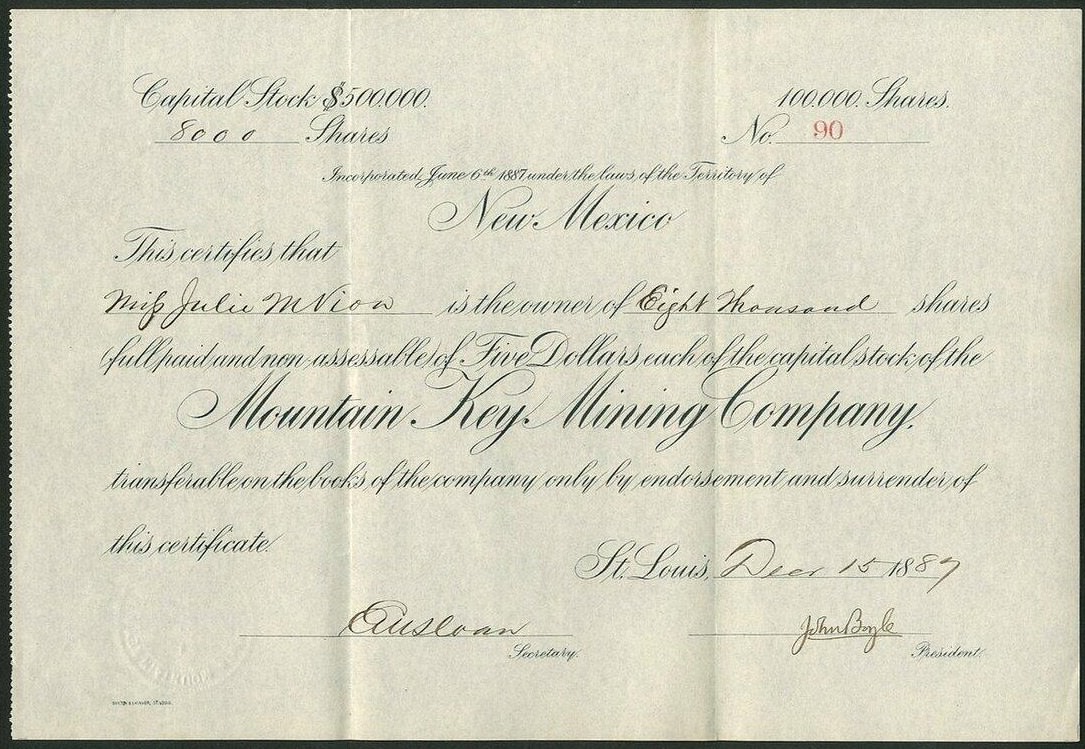 Capital Stock $500.000.
100.000. Shares.
8000 Shares
No. 90
Incorporated June 6th 1887 under the laws of the Territory of
New Mexico
This certifies that
Miss Julie M is the owner of Eight Thousand shares
(full paid and non-assessable) of Five Dollars each of the capital stock of the
Mountain Key Mining Company.
transferable on the books of the company only by endorsement and surrender of
this certificate.
St. Louis, Decr 15 1887
Sloan John Boyle
Secretary. President.